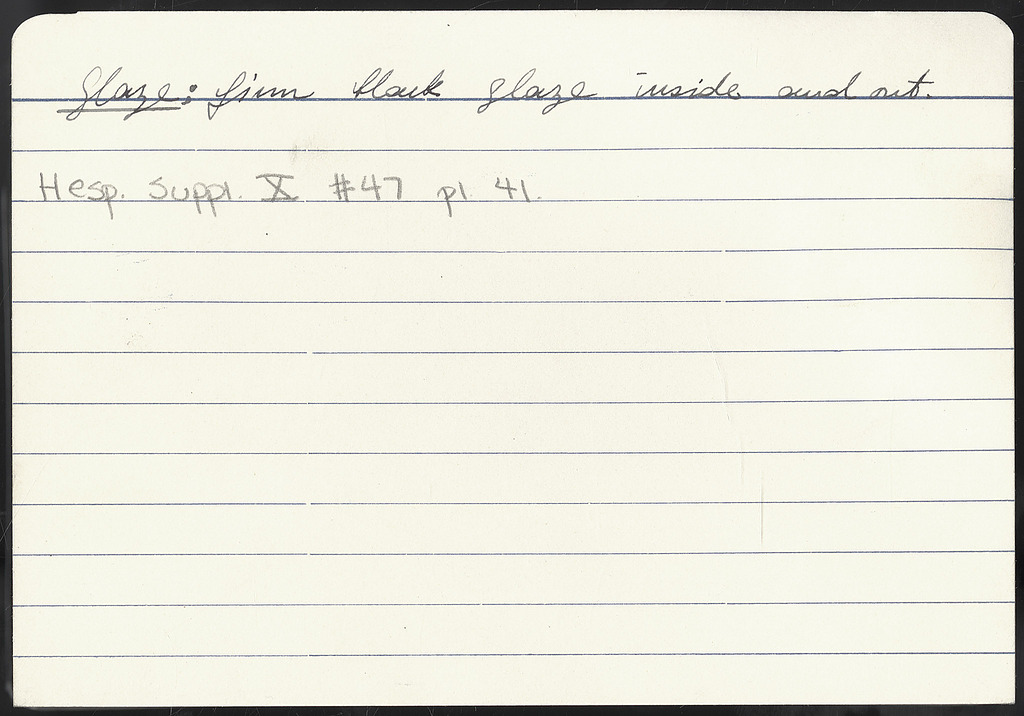 Glaze: firm black glaze inside and out.
Hesp. Suppl. X #47 pl. 41.